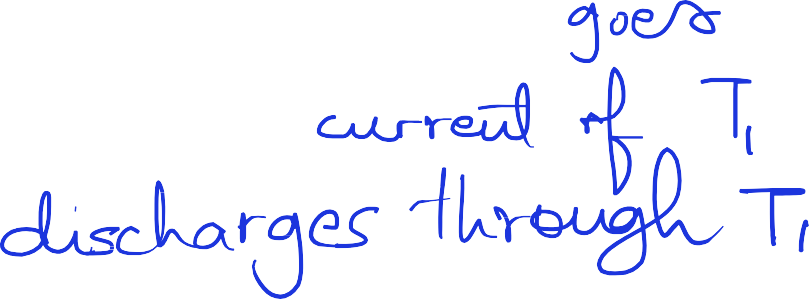 goes
current of T₁
discharges through T₁